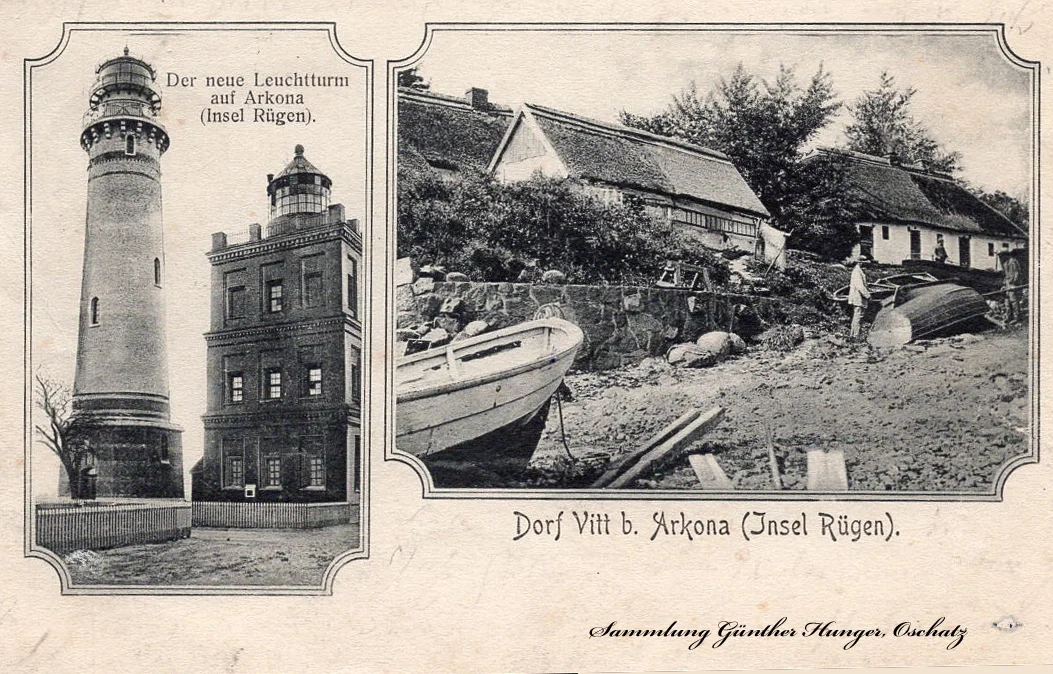 Der neue Leuchtturm
auf Arkona
(Insel Rügen).
Dorf Vitt b. Arkona (Insel Rügen).
Sammlung Günther Hunger, Oschatz